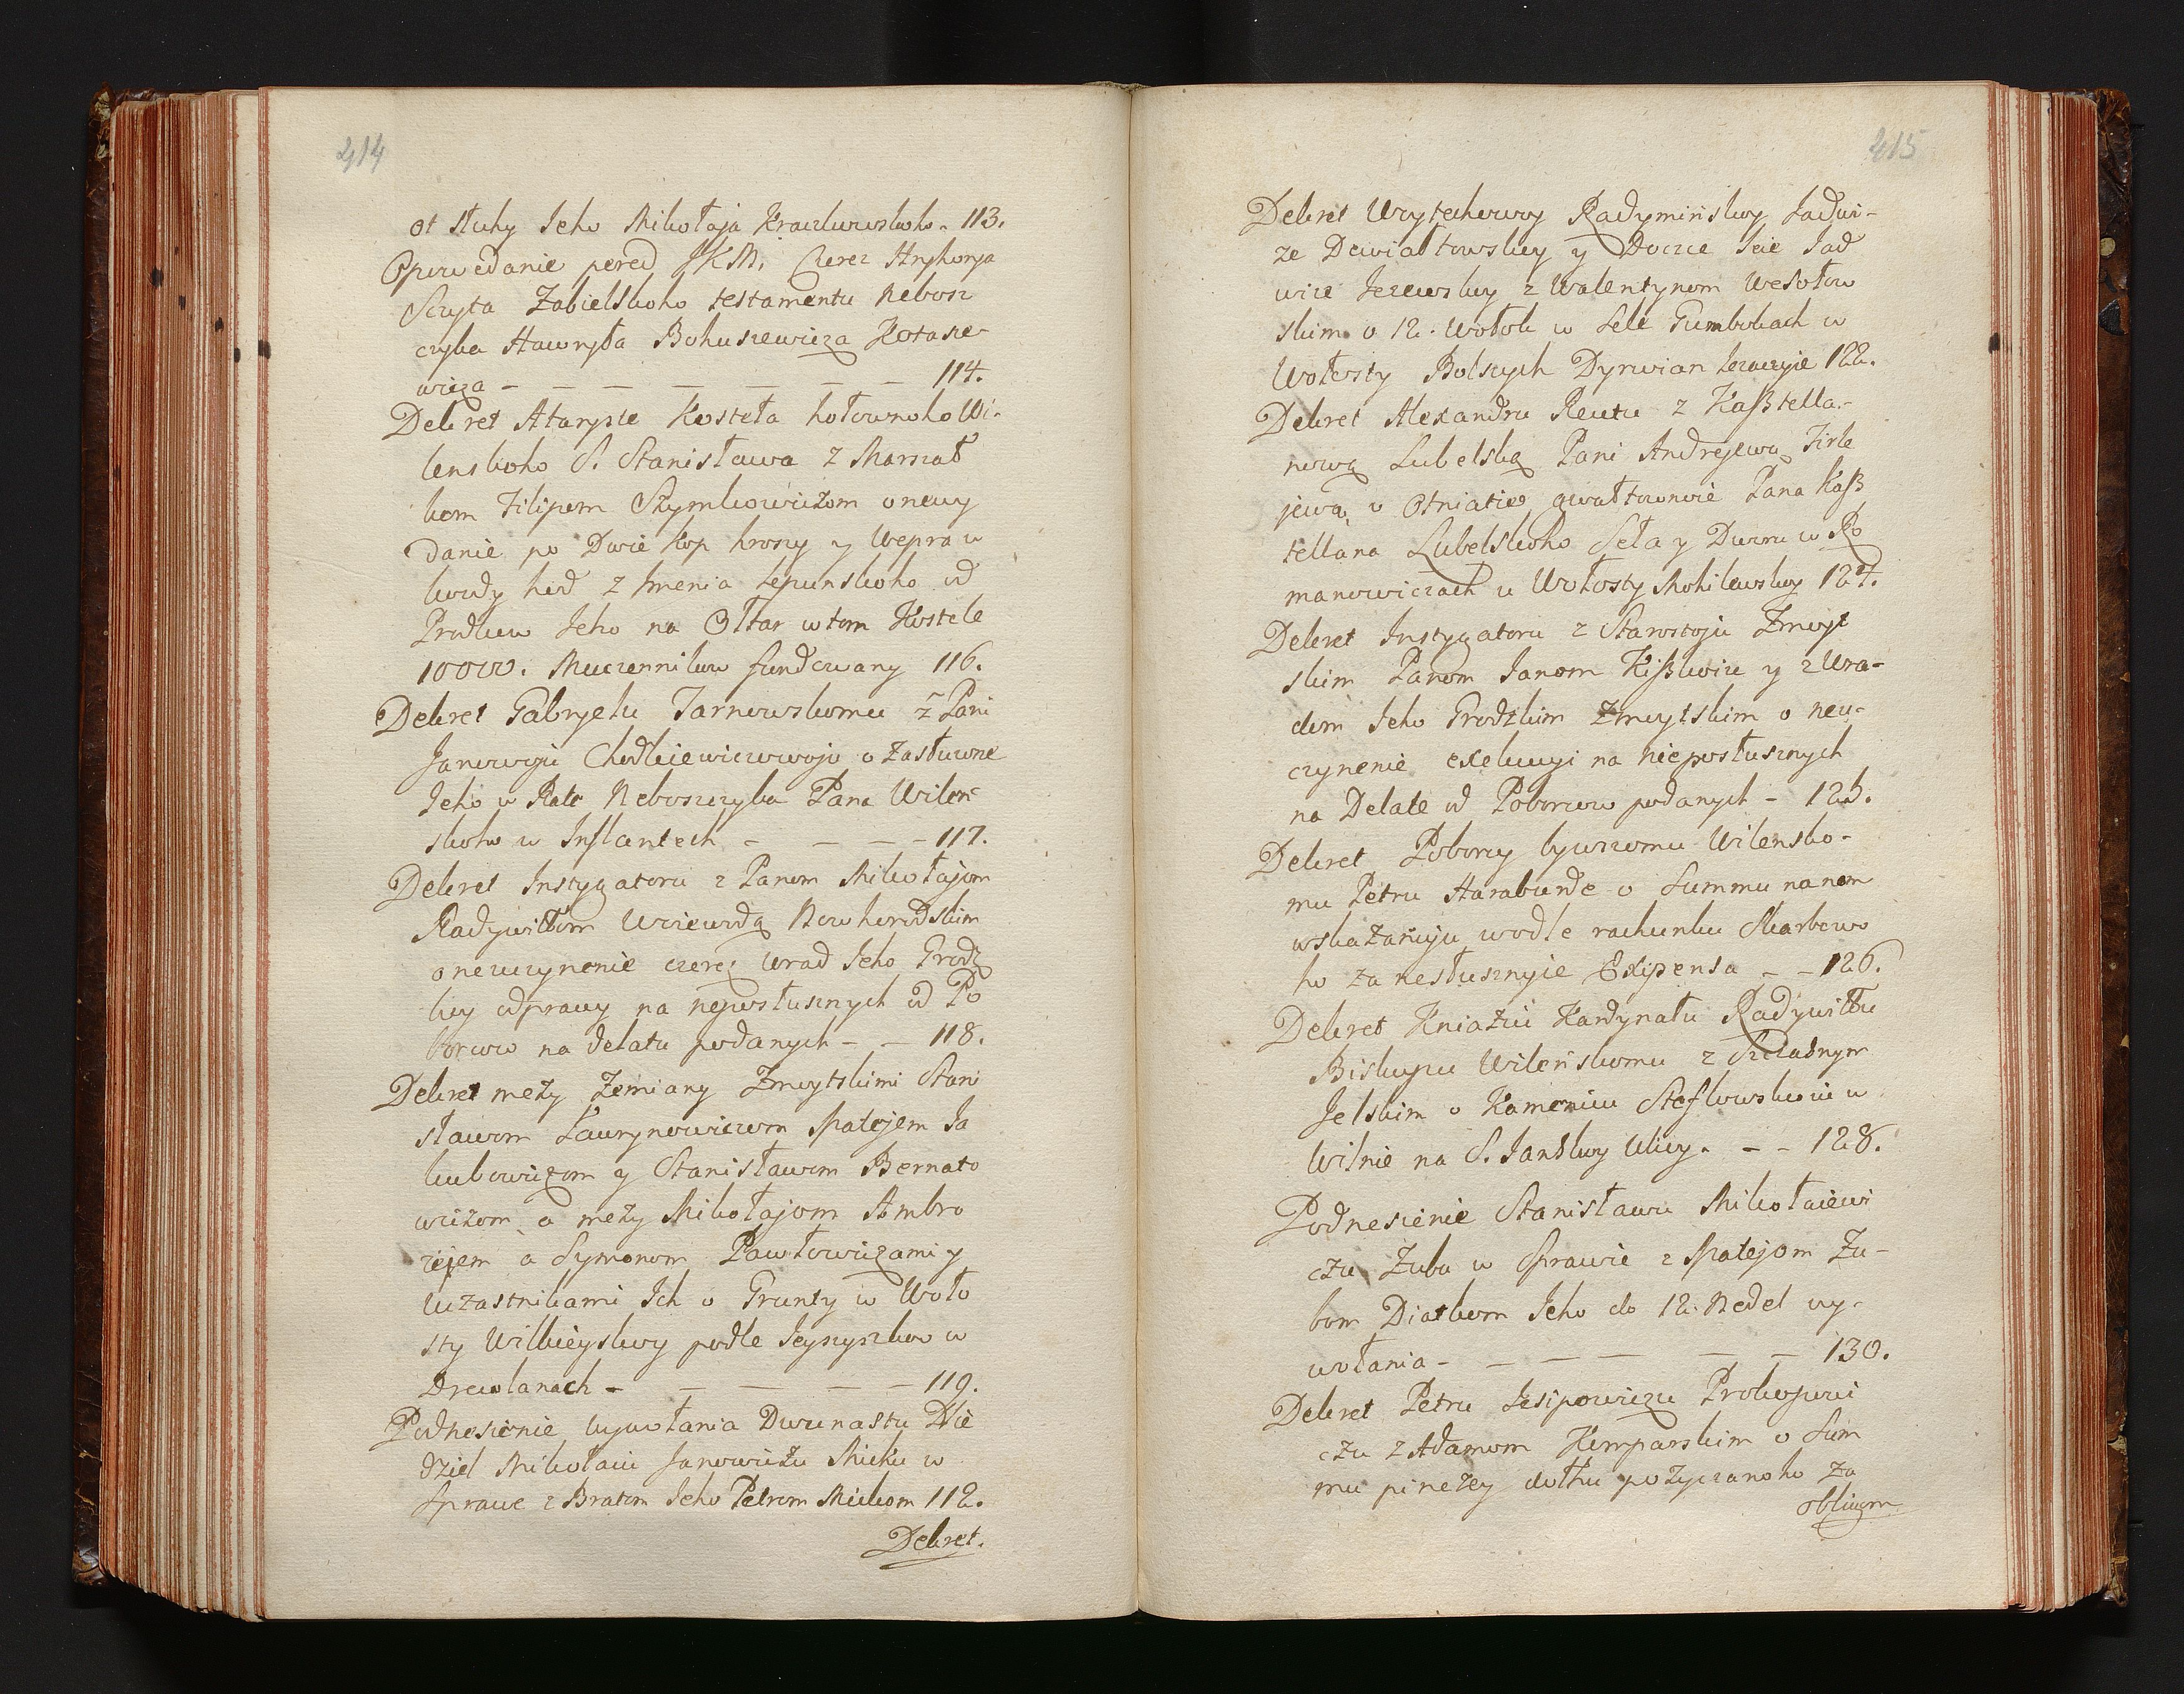 414
ot słuhy Jeho Mikołaja Kraczkowskoho. 113.
Opowedanie pered JKM. Czerez Hryhorja
Scyta Zabielskoho testamentu Nebosz
czyka Hawryła Bohuszewicza Korasze
wicza - - - - - - - 114.
Dekret Ataryste Kosteła hołownoho Wi-
lenskoho S. Stanisława z Marszał
kom Filipom Szymkowiczom o newy
danie po Dwie Kop hroszy y Wepra w
kożdy hod z Imenia Lepunskoho od
Prodkow Jeho na Ołtar w tom Kostele
10000. Muczennikow fundowany 116.
Dekret Gabryelu Tarnowskomu z Pani
Janowoju Chodkiewiczowoju o Zasłuzone
Jeho w Rote Neboszczyka Pana Wilen
skoho w Inflantech - - - - 117.
Dekret Instygatoru z Panom Mikołajom
Radywiłłom Woiewodą Nowhorodskim
o neuczynenie czerez Urad Jeho Grodz
kiy odprawy na neposłusznych od Po
borcow na delatu podanych - - 118.
Dekret mezy Zemiany Zmoytskimi Stani
sławom Ławrynowiczom Matejem Ja
kubowiczom y Stanisławom Bernato
wiczom a mezy Mikołajom Ambro
zejem a Symonom Pawłowiczami y
uczastnikami Ich o Grunty w Woło
sty Wilkieyskoy podle Jeyszyszkow w
Drewlanach - - - - - 119.
Podnesienie wywołania Dwunastu Nie
dziel Mikołaiu Janowiczu Micku w
Sprawe z Bratom Jeho Petrom Mickom 112.
Dekret.
415
Dekret Woytechowoy Radyminskoy Jadwi-
ze Dewiałtowskoy y Doczce Jeie Jad
wize Jezewskoy z Walentynom Wesołow
skim o 12. Wołok w Sele Gumbokach w
Wołosty Bolszych Dyrwian Leżaczyie 122.
Dekret Alexandru Reutu z Kaßtella-
nową Lubelską Pani Andrejewą Firle
jewą o Otniatie gwałtownoie Pana Kaß
tellana Lubelskoho Seła y Dworu w Ro
manowiczach u Wołosty Mohilewskoy 124.
Dekret Instygatoru z Starostoju Zmoyt
skim Panom Janom Kißkoiu y z Ura-
dom Jeho Grodzkim Zmoytskim o neu-
czynenie exekucyi na nieposłusznych
na Delate od Poborcow podanych - 125.
Dekret Poborcy bywszomu Wilensko-
mu Petru Haraburde o Summu na nom
wskazanuju wodle rachunku Skarbowo
ho za nesłusznyie Expensa - - 126.
Dekret Kniaziu Kardynału Radywiłłu
Biskupu Wilenskomu z Szczasnym
Jelskim o Kamenicu Stefkowskuiu w
Wilnie na S. Janskoy Ulicy. - - 128.
Podnesienie Stanisławu Mikołaiewi
czu Zubu w Sprawie z Matejom Zu-
bom Diatkom Jeho do 12. Nedel wy-
wołania - - - - - - 130.
Dekret Petru Jesipowiczu Prokopowi
czu z Adamom Kemparskim o Sum
mu pinezey dołhu pożyczanoho za
obligom